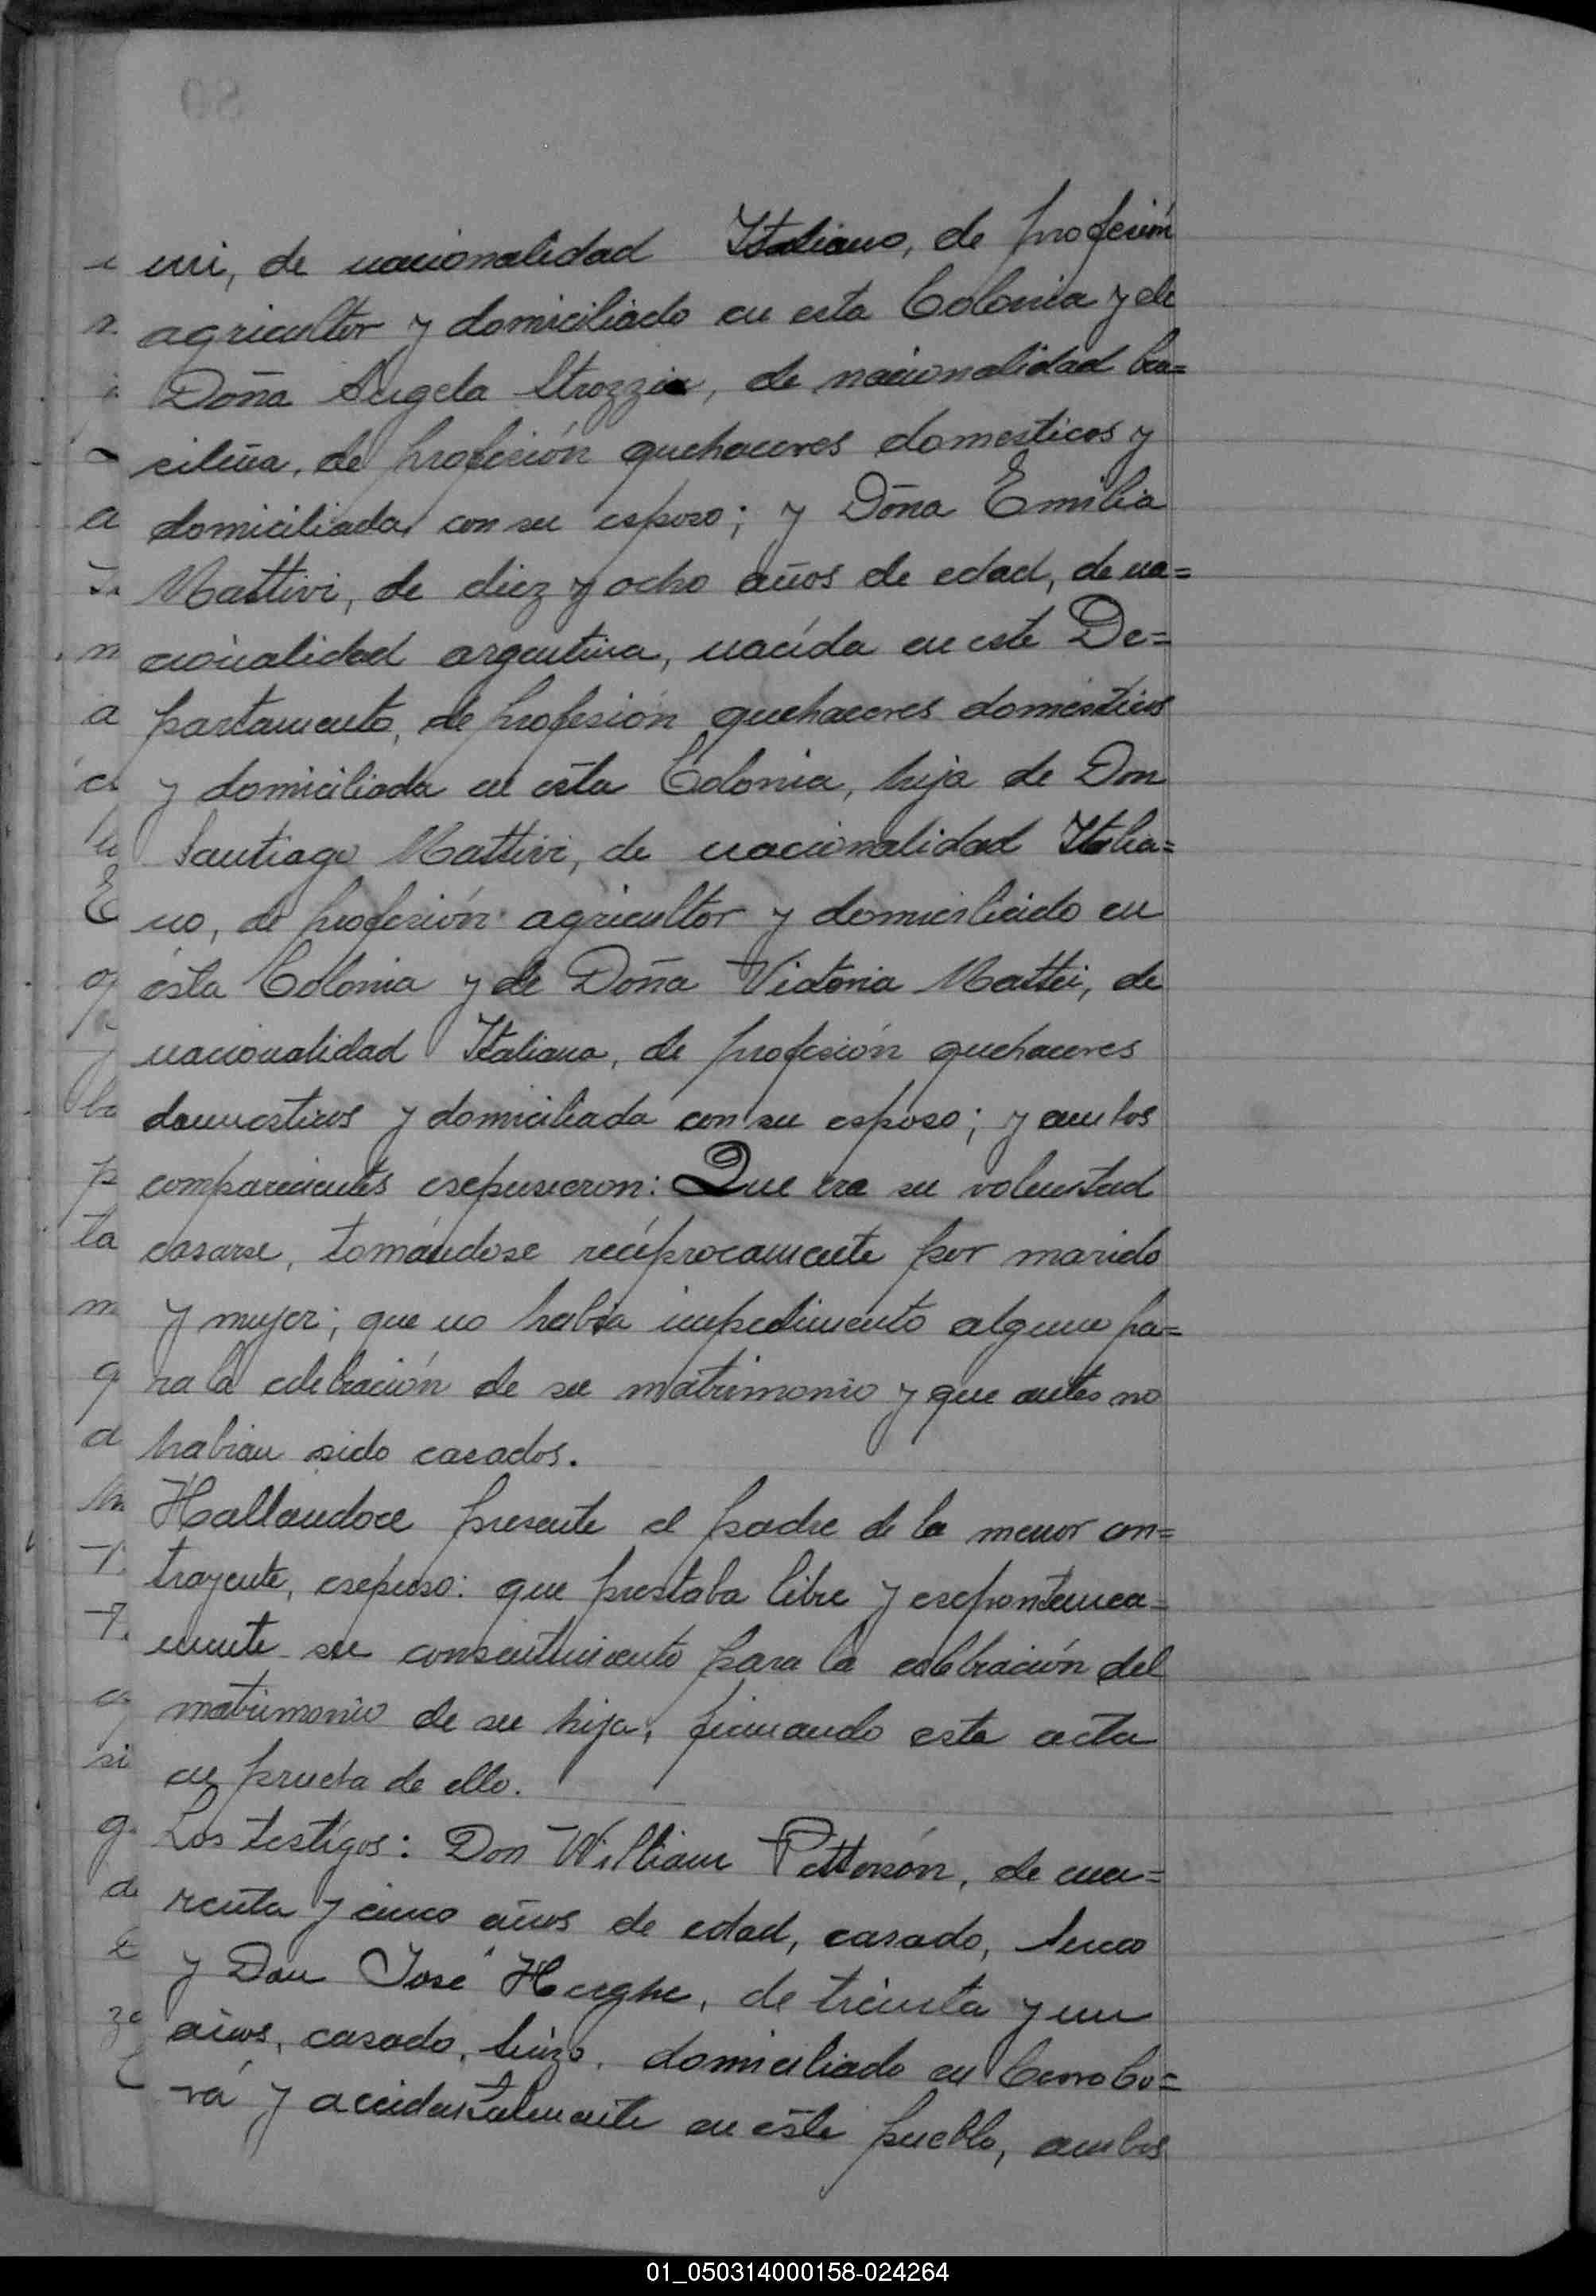 ini, de nacionalidad Italiano, de profesión
agricultor y domiciliado en esta Colonia y de
Doña Angela Strozzia, de nacionalidad bra=
sileña, de profesión quehaceres domesticos y
domiciliada con su esposo; y Doña Emilia
Mattivi, de diez y ocho años de edad, de na=
cionalidad argentina, nacída en este De=
partamento, de profesión quehaceres domésticos
y domiciliada en ésta Colonia, hija de Don
Santiago Mattivi, de nacionalidad Italia=
no, de profesión agricultor y domiciliado en
ésta Colonia y de Doña Victoria Mattei, de
nacionalidad Italiana, de profesión quehaceres
domesticos y domiciliada con su esposo; y ambos
comparecientes esepusieron: Que era su voluntad
casarse, tomándose recíprocamente por marido
y mujer; que no habia impedimento alguno pa=
ra la celebración de su matrimonio y que antes no
habian sido casados.
Hallandoce presente el padre de la menor con=
trayente, esepuso: que prestaba libre y esepontanea=
mente su consentimiento para la celebración del
matrimonio de su hija, firmando esta acta
en prueba de ello.
Los testígos: Don William Pettersón, de cua=
renta y cinco años de edad, casado, Sueco
y Don José Herghe, de treinta y un
años, casado, Suizo, domiciliado en Cerro Co=
rá y accidentalmente en éste pueblo, ambos
01_050314000158-024264